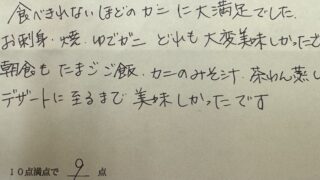 食べきれないほどのカニに大満足でした.
お刺身・焼・ゆでガニ どれも大変美味しかったで
朝食も たまごご飯・カニのみそ汁・茶わん蒸し
デザートに至るまで美味しかったです
10点満点で 9 点